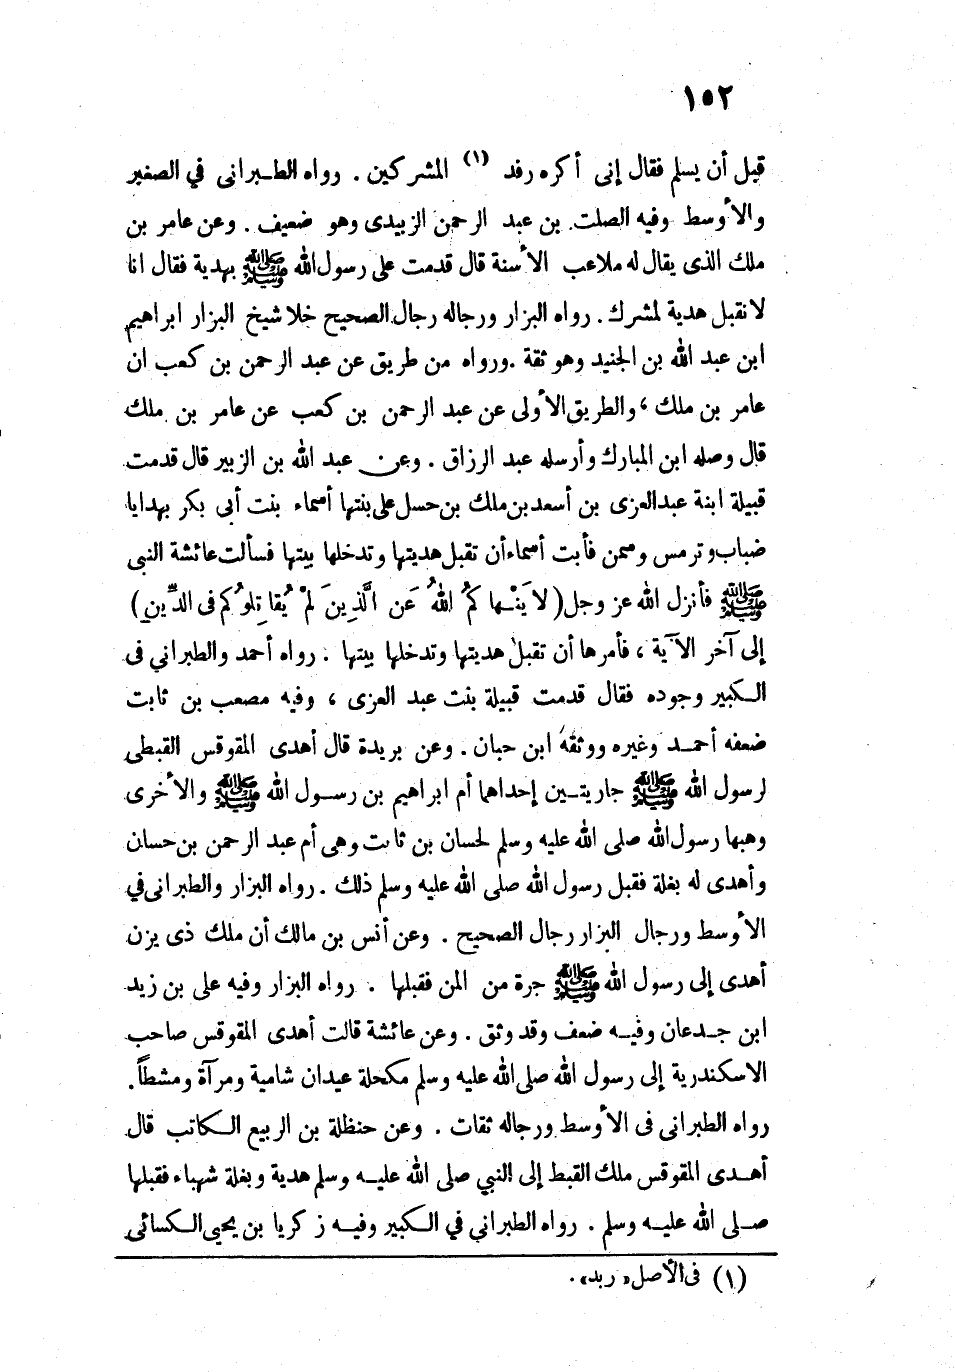 ١٥٢
قبل أن يسلم فقال إنى أكره رفد (١) المشركين . رواه الطـبرانى في الصغير
والأوسط وفيه الصلت بن عبد الرحمن الزبيدى وهو ضعيف . وعن عامر بن
ملك الذى يقال له ملاعب الأسنة قال قدمت على رسول الله ﷺ بهدية فقال انا
لا نقبل هدية لمشرك . رواه البزار ورجاله رجال الصحيح خلا شيخ البزار ابراهيم
ابن عبد الله بن الجنيد وهو ثقة .ورواه من طريق عن عبد الرحمن بن كعب ان
عامر بن ملك ، والطريق الأولى عن عبد الرحمن بن كعب عن عامر بن ملك
قال وصله ابن المبارك وأرسله عبد الرزاق . وعن عبد الله بن الزبير قال قدمت
قبيلة ابنة عبد العزى بن أسعد بن ملك بن حسل على بنتها أسماء بنت أبى بكر بهدايا
ضباب وترمس وسمن فأبت أسماء أن تقبل هديتها وتدخلها بيتها فسألت عائشة النبى
ﷺ فأنزل الله عز وجل (لا يَنْـهاكُمُ اللهُ عَنِ الَّذِينَ لَمْ يُقاتِلوُكُم فى الدِّينِ)
إلى آخر الآية ، فأمرها أن تقبل هديتها وتدخلها بيتها . رواه أحمد والطبراني فى
الـكبير وجوده فقال قدمت قبيلة بنت عبد العزى ، وفيه مصعب بن ثابت
ضعفه أحمـد وغيره ووثقه ابن حبان . وعن بريدة قال أهدى المقوقس القبطى
لرسول الله ﷺ جاريتـين إحداهما أم ابراهيم بن رسـول الله ﷺ والأخرى
وهبها رسول الله صلى الله عليه وسلم لحسان بن ثابت وهى أم عبد الرحمن بن حسان
وأهدى له بغلة فقبل رسول الله صلى الله عليه وسلم ذلك . رواه البزار والطبرانى في
الأوسط ورجال البزار رجال الصحيح . وعن أنس بن مالك أن ملك ذى يزن
أهدى إلى رسول الله ﷺ جرة من المن فقبلها . رواه البزار وفيه على بن زيد
ابن جـدعان وفيـه ضعف وقد وثق . وعن عائشة قالت أهدى المقوقس صاحب
الاسكندرية إلى رسول الله صلى الله عليه وسلم مكحلة عيدان شامية ومرآة ومشطاً.
رواه الطبرانى فى الأوسط ورجاله ثقات . وعن حنظلة بن الربيع الـكاتب قال
أهـدى المقوقس ملك القبط إلى النبي صلى الله عليـه وسلم هدية وبغلة شهباء فقبلها
صـلى الله عليـه وسلم . رواه الطبراني في الـكبير وفيـه زكريا بن يحيى الـكسائى
(١) فى الأصل «ربد» .